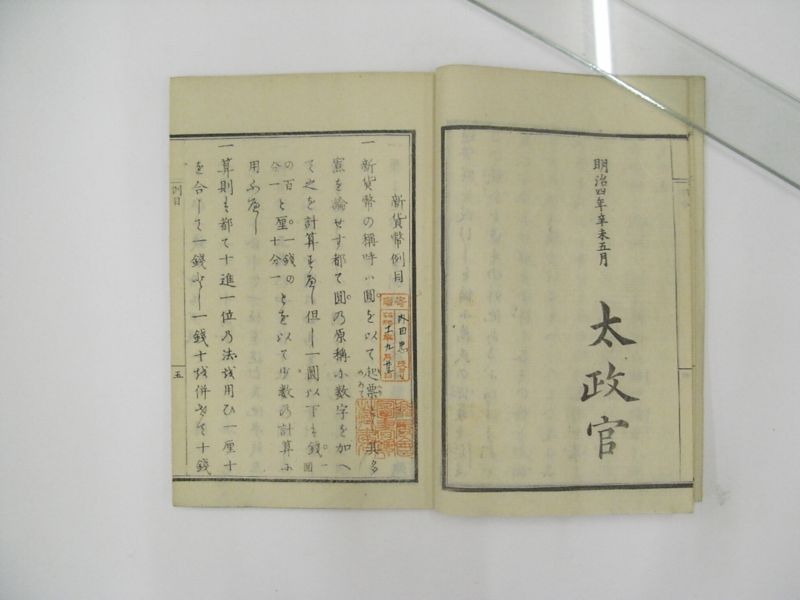 明治四年辛未五月
太政官
新貨幣例目
一新貨幣の稱呼ハ圓を以て起票とし其多
寡を論せす都て圓乃原稱小數字を加へ
て之を計算すへし但し一圓以下ハ錢一圓
の百分一と厘一錢の十分一とを以て少數の計算に
用ふへし
一算則は都て十進一位乃法を用ひ一厘十
を合して一錢とし一錢十を併せて十錢
例目
五